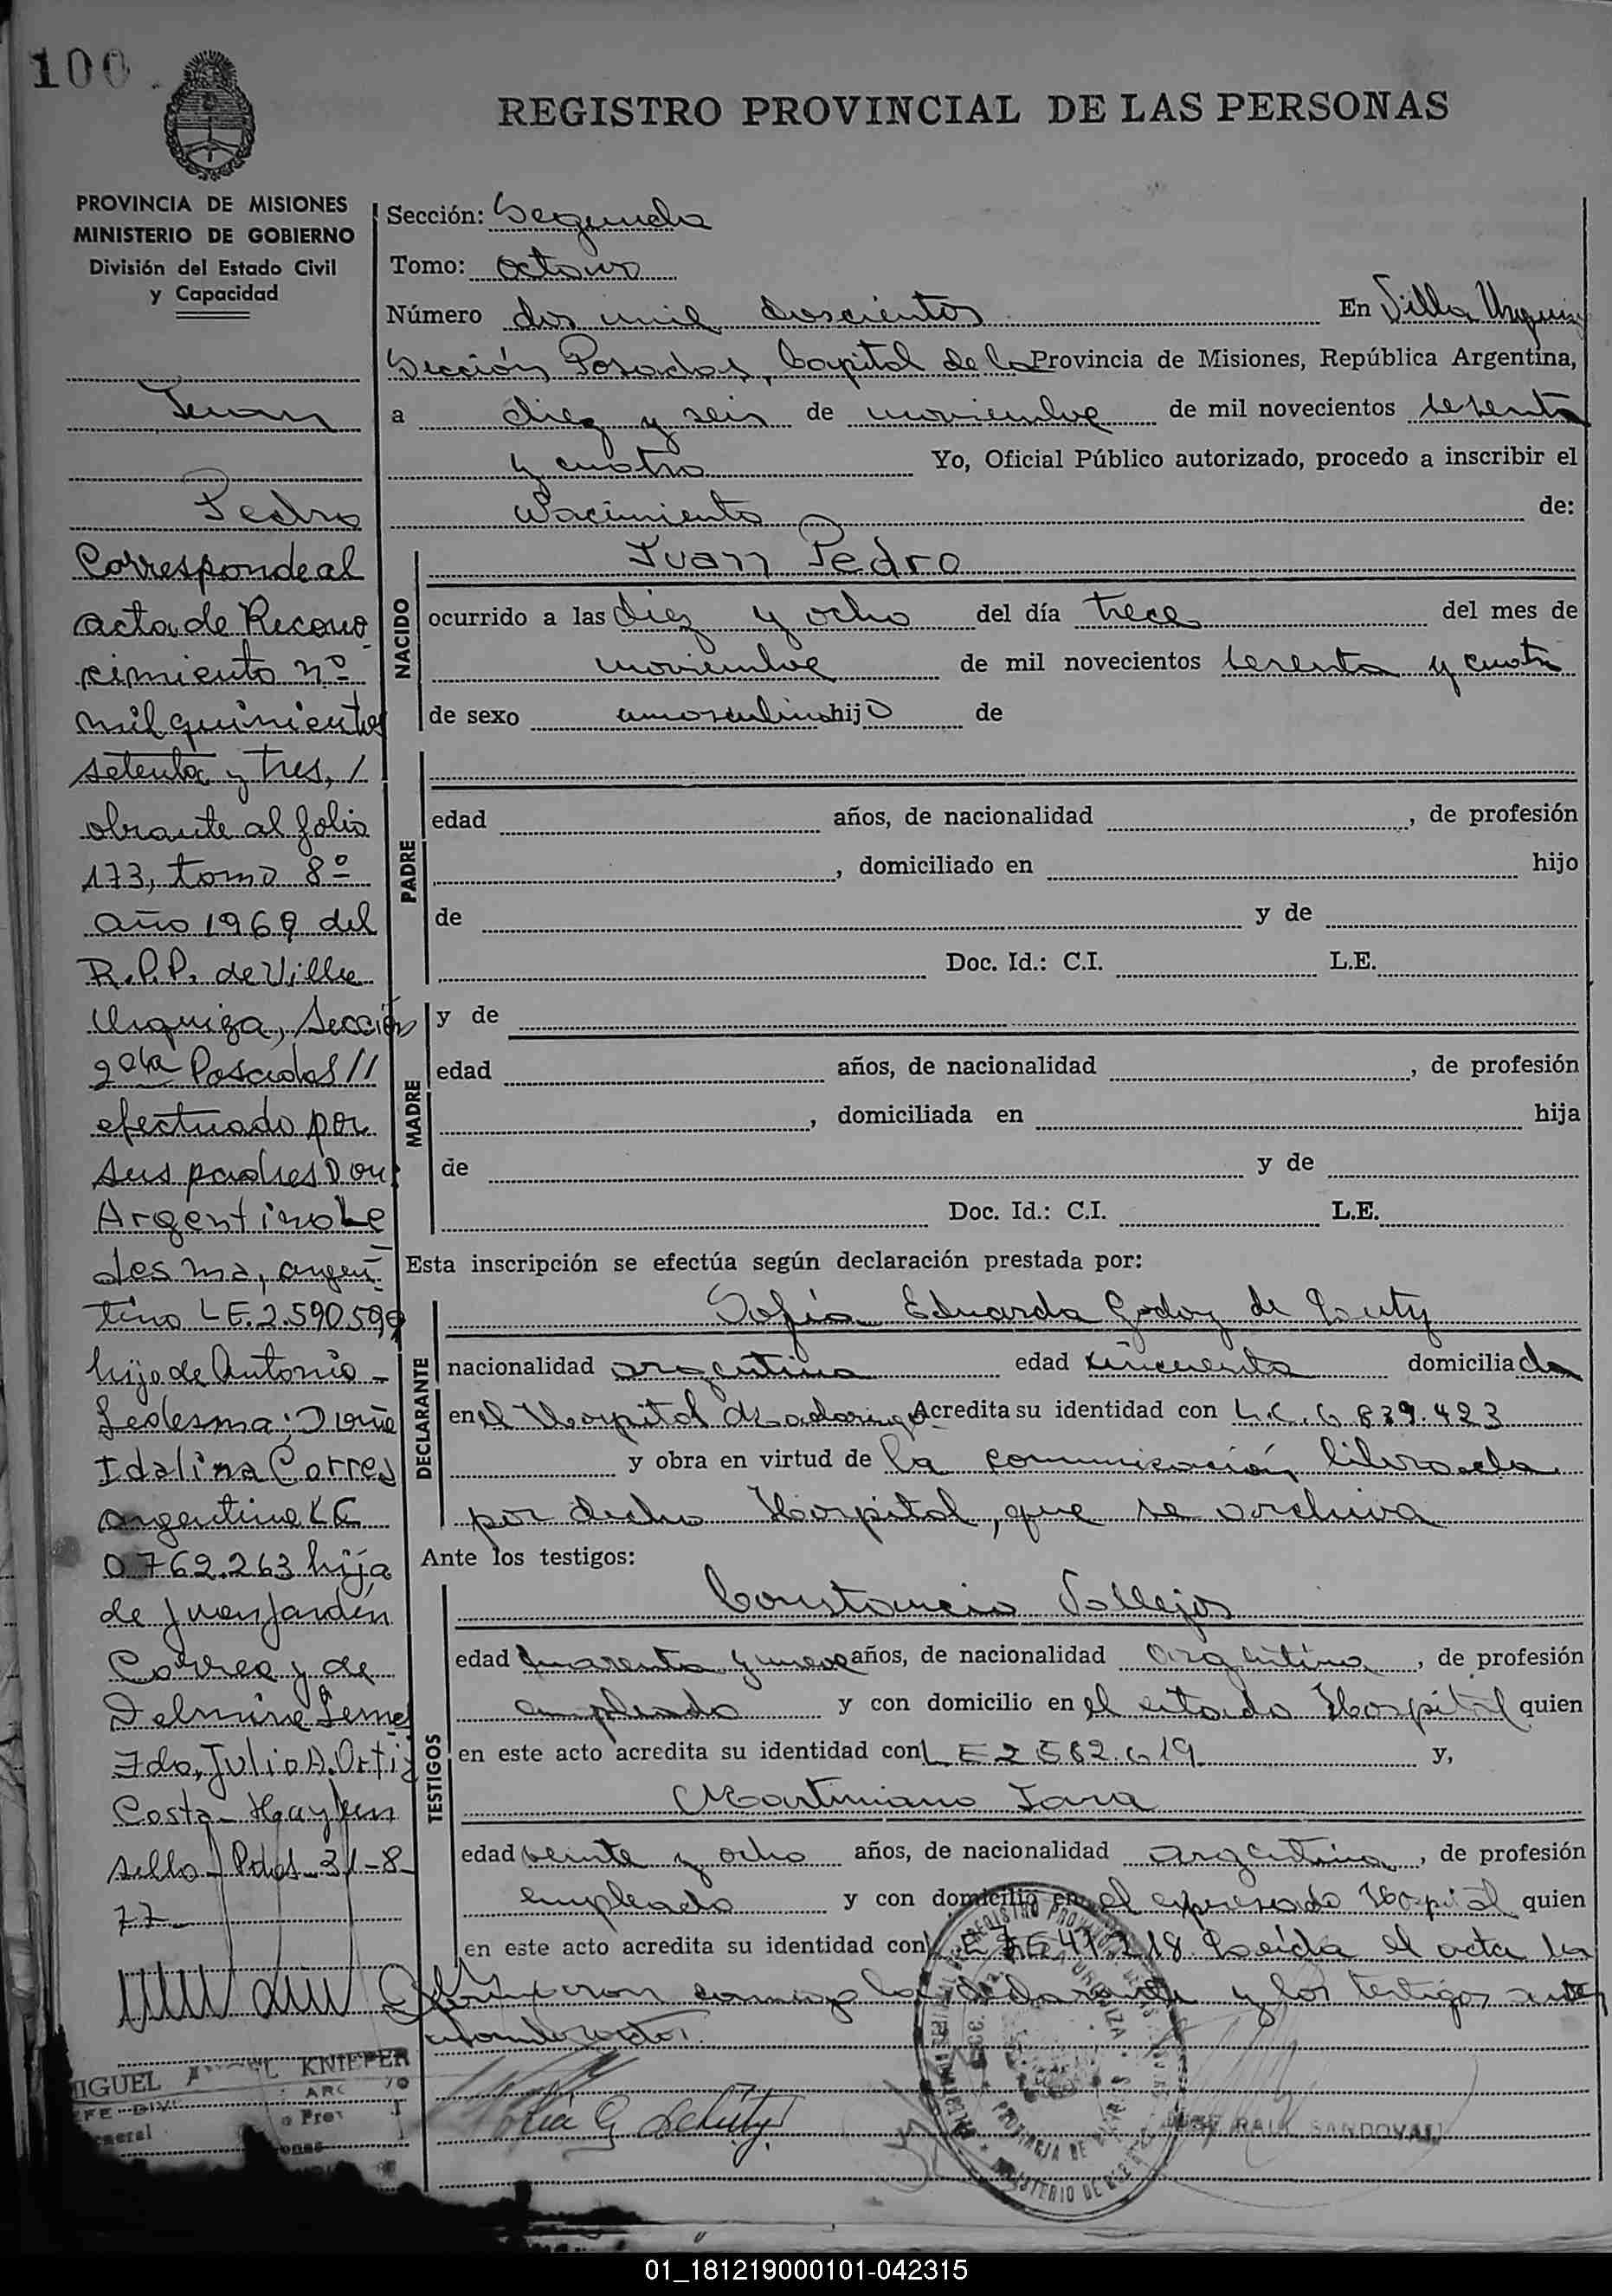 100
REGISTRO PROVINCIAL DE LAS PERSONAS
PROVINCIA DE MISIONES
MINISTERIO DE GOBIERNO
División del Estado Civil
y Capacidad
Juan
Pedro
Corresponde al
acta de Recono
cimiento nº
mil quinientos
setenta y tres, /
obrante al folio
173, tomo 8º
año 1969 del
R.P.P. de Villa
Urquiza, Sección
2da Posadas //
efectuado por
sus padres Don
Argentino Le
desma, argen
tino LE. 2.590.599
hijo de Antonio
Ledesma; Doña
Idalina Correa
argentina LC
0.762.263 hija
de Juan Jardín
Correa y de
Delmira Leme
Fdo, Julio A. Ortiz
Costa - Hay un
sello - Pdas 31-8-
77-
KNIEPER
Sección: Segunda
Tomo: Octavo
Número dos mil doscientos En Villa Urquiza
Sección Posadas, Capital de la Provincia de Misiones, República Argentina,
a diez y seis de noviembre de mil novecientos sesenta
y cuatro Yo, Oficial Público autorizado, procedo a inscribir el
Nacimiento de:
NACIDO
Juan Pedro
ocurrido a las diez y ocho del día trece del mes de
noviembre de mil novecientos sesenta y cuatro
de sexo masculino hijo de
PADRE
edad años, de nacionalidad , de profesión
, domiciliado en hijo
de y de
Doc. Id.: C.I. L.E.
MADRE
y de
edad años, de nacionalidad , de profesión
, domiciliada en hija
de y de
Doc. Id.: C.I. L.E.
Esta inscripción se efectúa según declaración prestada por:
DECLARANTE
Sofía Eduarda Godoy de
nacionalidad argentina edad cincuenta domiciliada
en el Hospital Madariaga Acredita su identidad con L.C. 6.839.423
y obra en virtud de la comunicación librada
por dicho Hospital, que se archiva
Ante los testigos:
TESTIGOS
Constancio Vallejos
edad cuarenta y nueve años, de nacionalidad argentina, de profesión
empleado y con domicilio en el citado Hospital quien
en este acto acredita su identidad con L E 2.582.619 y,
Martiniano Jara
edad veinte y ocho años, de nacionalidad argentina, de profesión
empleado y con domicilio en el expresado Hospital quien
en este acto acredita su identidad con Leída el acta la
conmigo la declarante y los testigos antes
JOSE RAUL SANDOVAL
01_181219000101-042315